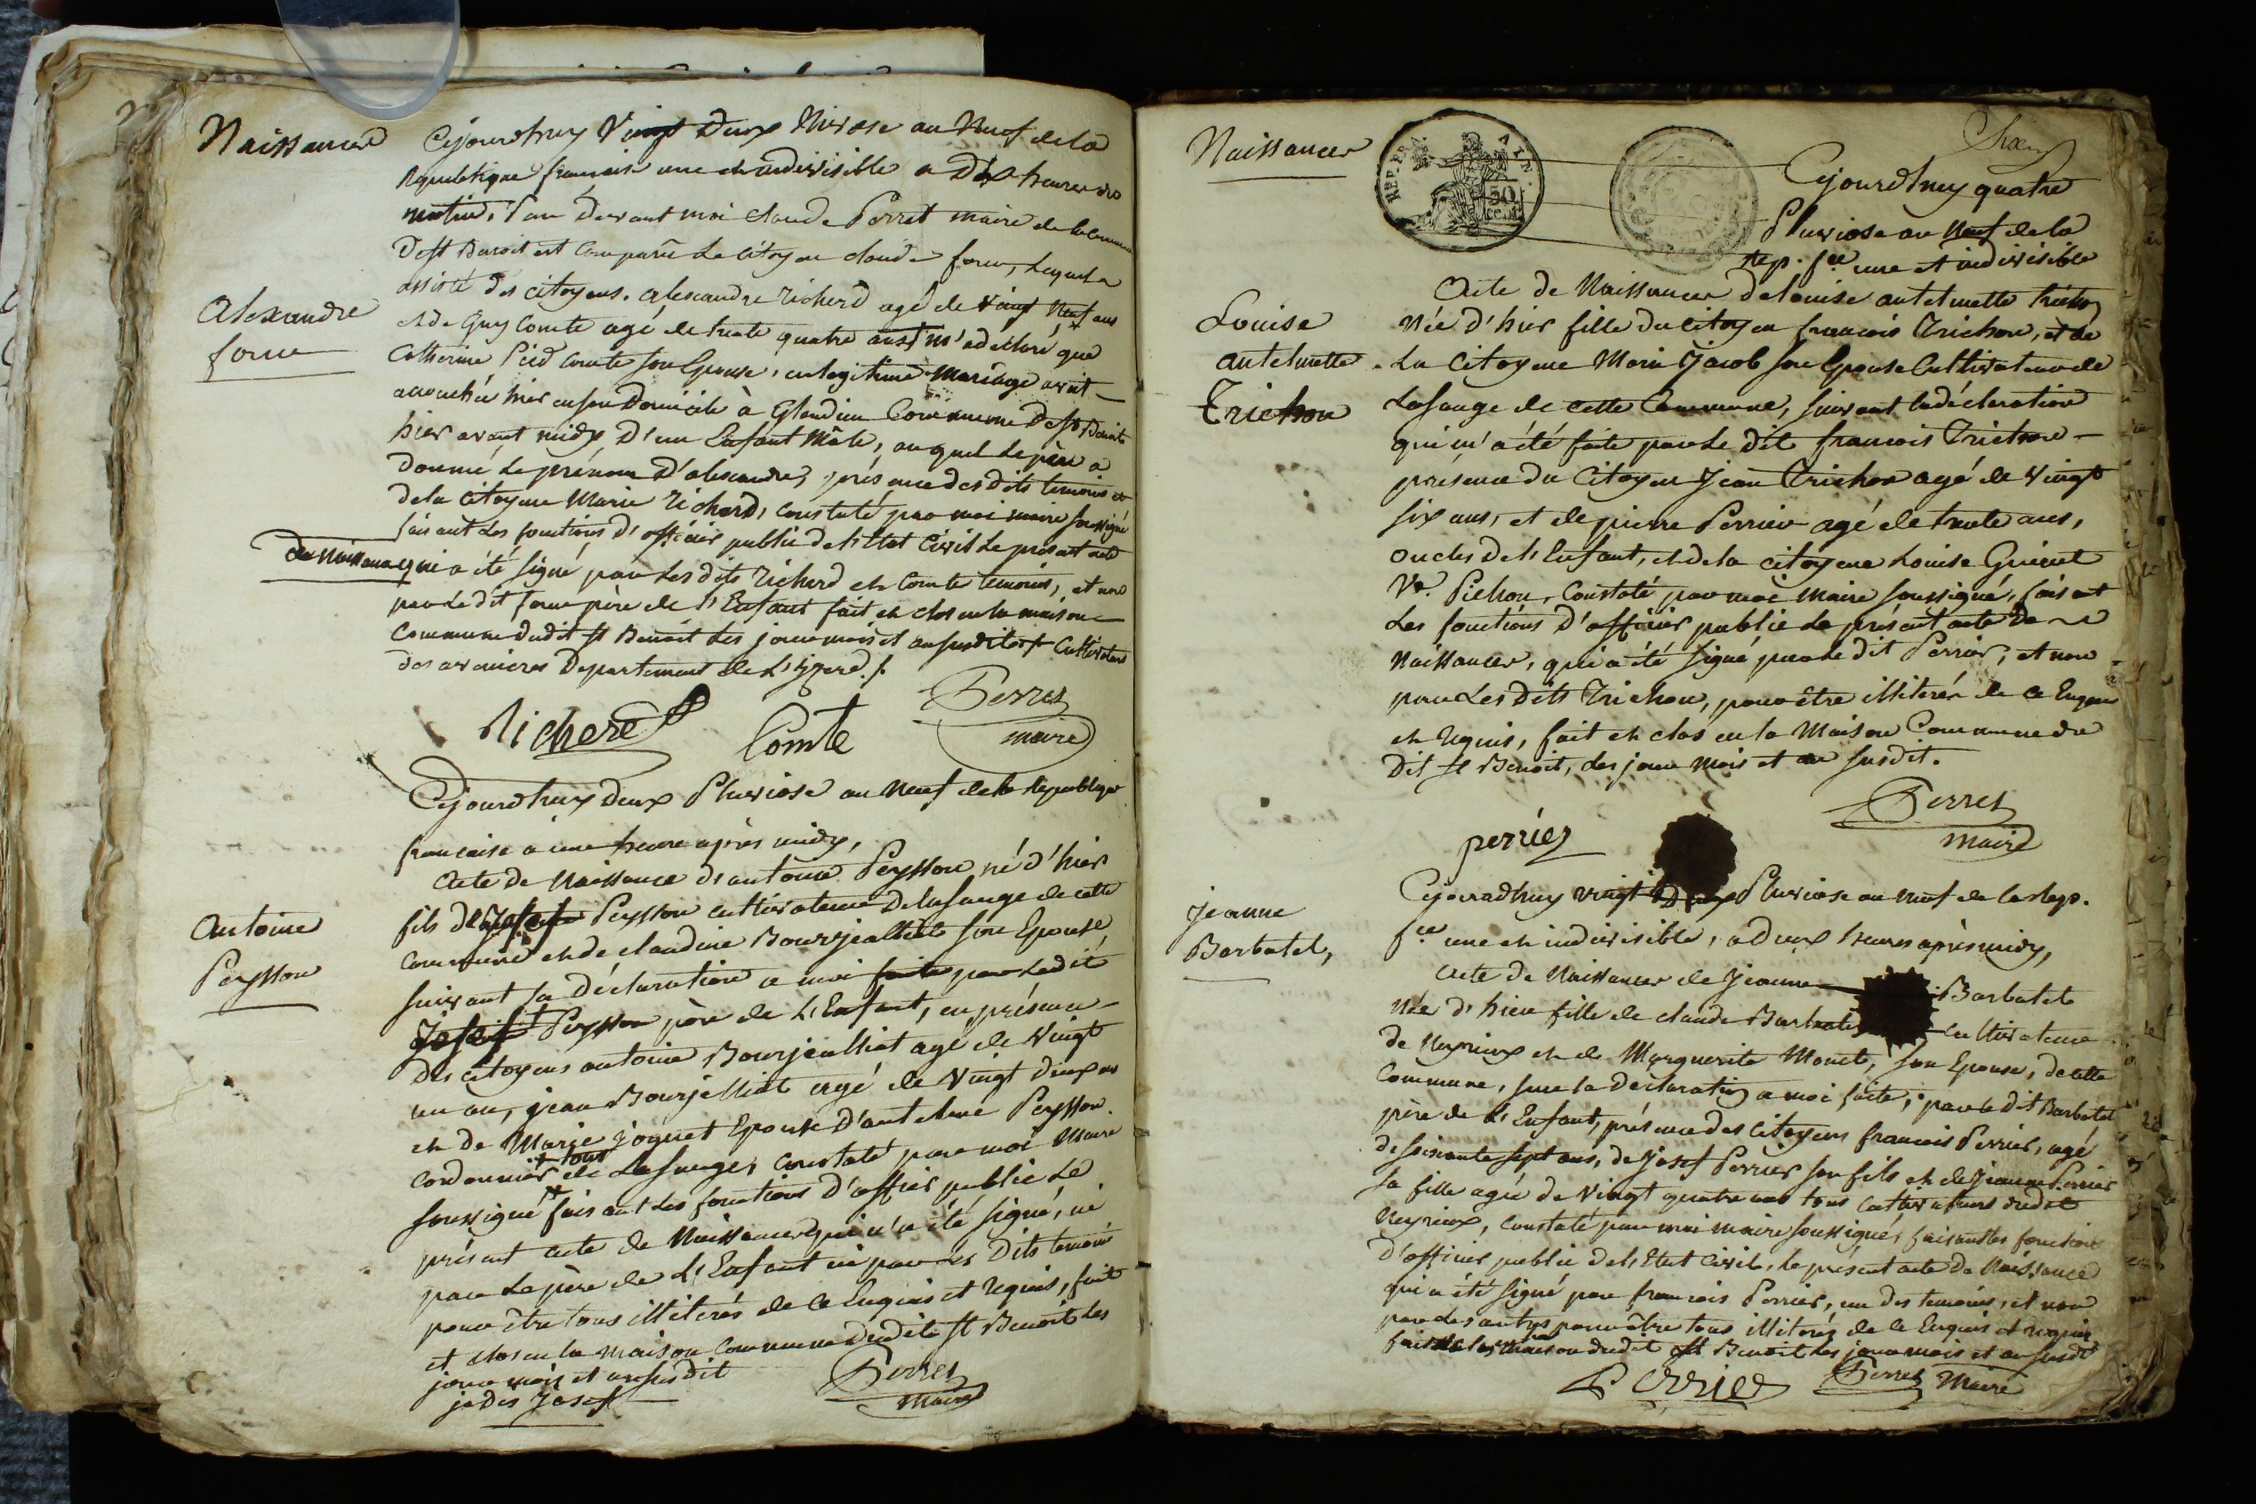 Naissances
Cejourdhuy Vingt Deux Nivose an Neuf de la
Republique francaise une et indivisible a Dix heures du
matin, par devant moi Claude Perret maire de la Commune
De St Benoit est Comparû Le Citoyen Claude, Lequel
assisté des citoyens. alexandre Richerd agé de Vingt Neuf ans
et de Guy Comte agé de trente quatre ans m'a déclaré que
Catherine Comte Son Epouse, en legitime Mariage avait
accouchée hier en son Domicile à Glandieu Commune De St Benoit
hier avant midy D'un Enfant Mâle, auquel Le père a
Donné Le prénom D'alexandre, présence des dits temoins et
de la Citoyenne Marie Richerd, Constaté par moi maire soussigné
faisant Les fonctions d'officier public de l'Etat Civil Le présent acte
De Naissance qui a été signé par Les dits Richerd et Comte temoins, et non
par Le dit père de l'Enfant fait et clos en la maison
Commune dudit St Benoît Les jour mois et an susdits + Cultivateur
des avenieres Departement de L'Izere./.
Alexandre
Richerd
Comte
Perret
maire
Cejourdhuy Deux Pluviose an Neuf de la Republique
francaise a une heure après midy,
Acte de Naissance d'antoine Peysson né d'hier
fils de Peysson cultivateur De Lasauge de cette
Commune et de Claudine Bourjeailliat Son Epouse
suivant La Déclaration a moi faite par Ledit
Josef Peysson père de L'Enfant, en présence
Des Citoyens antoine Bourjeailliat agé de Vingt
un an, jean Bourjelliat agé de Vingt Deux ans
et de Marie joguet Epouse D'antelme Peysson
Cordonnier + tous de Lasauge, Constaté par moi Maire
soussigné faisant Les fonctions D'officier public Le
présent acte de Naissance qui n'a été signé, ni
par Le père de L'Enfant ni par Les Dits temoins
pour être tous illiterés de ce Enquis et requis, fait
et clos en la maison Commune Dudit St Benoît Les
jour mois et an susdit
je dis Josef
Antoine
Peysson
Perret
maire
Naissances
REP. FRA.
AIN.
50
cent.
Cejourdhuy quatre
Pluviose an Neuf de la
Rep. fse une et indivisible
Acte de Naissance de Louise antelmette Trichon
Née d'hier fille du Citoyen francois Trichon, et de
La Citoyenne Marie Jacob Son Epouse Cultivateur de
Lasauge de cette Commune, suivant la déclaration
qui m'a été faite par Le dit francois Trichon
présence du Citoyen Jean Trichon agé de Vingt
six ans, et de pierre Perrier agé de trente ans,
oncles de l'Enfant, et de la Citoyenne Louise
Ve. Pichon, Constaté par moi Maire soussigné, faisant
Les fonctions D'officier public Le présent acte De
Naissance, qui a été signé par Le dit Perrier, et non
par Les Dits Trichon, pour être illiterés de ce Enquis
et requis, fait et clos en la Maison Commune du
Dit St Benoit, Les jour mois et an susdit.
Louise
antelmette
Trichon
perrier
Perret
maire
Cejourdhuy vingt Deux Pluviose an Neuf de la Rep.
fse une et indivisible, a Deux heures après midy,
Acte de Naissance de Jeanne Barbatel
Née d'hier fille de claude Barbatel Cultivateur
de Neyrieux et de Marguerite Monet, Son Epouse, de cette
Commune, sur la Declaration a moi faite, par Le dit Barbatel
père de L'Enfant, présence des Citoyens francois Perrier, agé
de soixante sept ans, de Josef Perrier son fils et de Jeanne Perrier
sa fille agée de vingt quatre ans tous Cultivateurs dudit
Neyrieux, Constaté par moi maire soussigné, faisant les fonctions
D'officier public de l'Etat Civil, le présent acte De Naissance
qui a été signé par francois Perrier, un Des temoins, et non
par Les autres pour être tous illiterés de ce Enquis et requis
fait la Maison dudit St Benoit Les jour mois et an susdit
Jeanne
Barbatel,
Perrier
Perret Maire